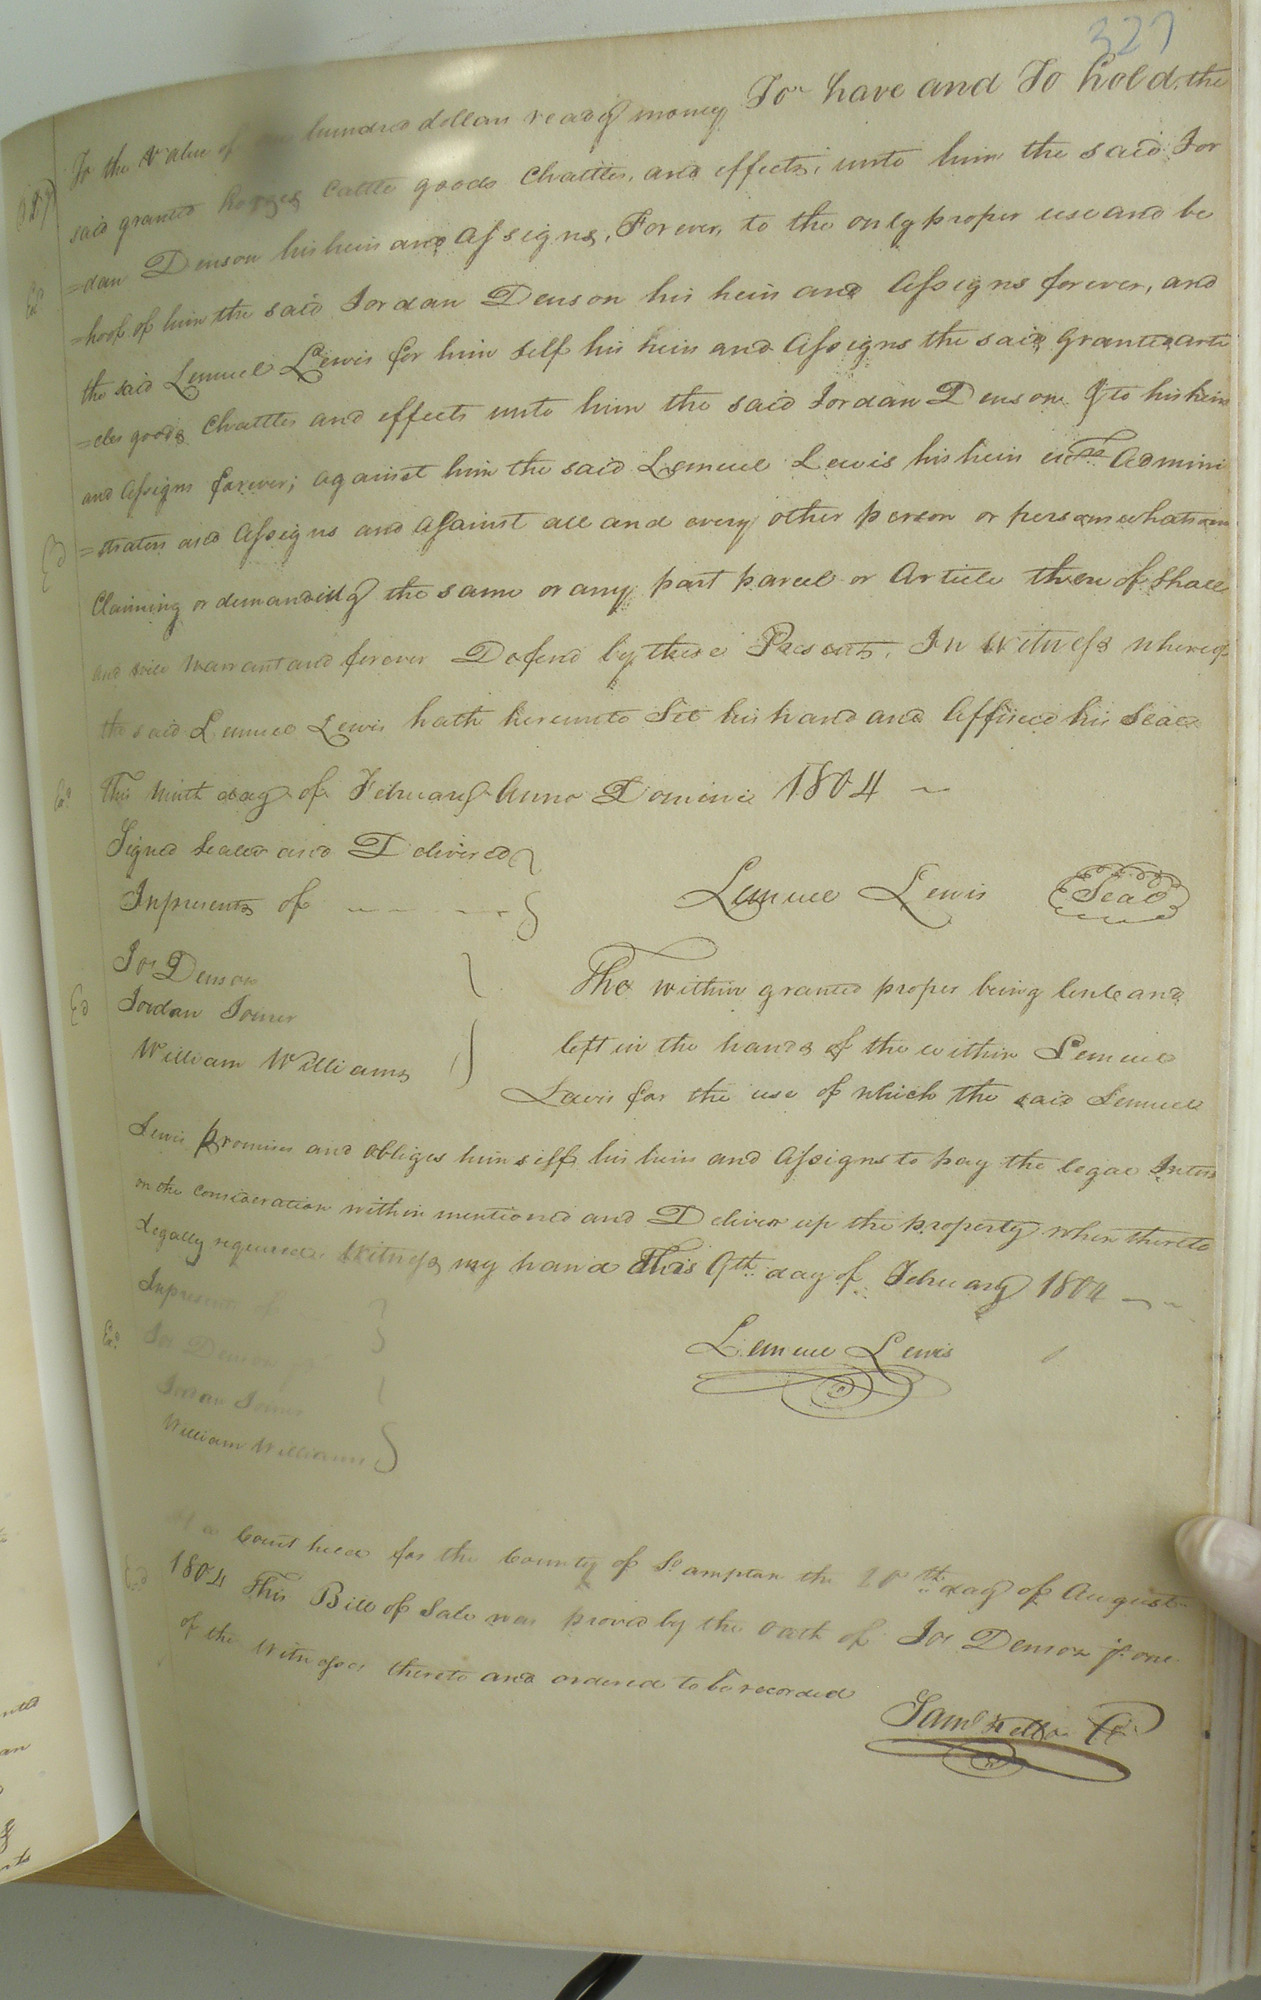 327
To the Value of hundred dollars ready money To have and To hold, the
said granted horses Cattle goods Chattles, and effects, unto him the said Jor
=dan Denson his heirs and Assigns, Forever, to the only proper use and be
=hoof of him the said Jordan Denson his heirs and Assigns forever, and
the said Lemuel Lewis for him self his heirs and Assigns the said granted arti
=cles goods Chattles and effects unto him the said Jordan Denson & to his heirs
and Assigns forever; against him the said Lemuel Lewis his heirs Admini
=strators and Assigns and Against all and every other person or persons whatsoever
Claiming or demanding the same or any part parcel or Article there of Shall
and will warrant and forever Defend by these Presents. In Witness whereof
the said Lemuel Lewis hath hereunto Set his hand and Affixed his Seal
This ninth day of February Anno Domini 1804
Signed Sealed and Delivered
In presents of
Lemuel Lewis Seal
Jos Denson
Jordan Joiner
William Williams
The within granted proper being lent and
left in the hands of the within Lemuel
Lewis for the use of which the said Lemuel
Lewis promises and obliges himself his heirs and Assigns to pay the legal Inters
on the consideration within mentioned and Deliver up the property when thereto
Legally required Witness my hand This 9th day of February 1804
In presents of
Lemuel Lewis
Jos Denson
Jordan Joiner
William Williams
At a Court held for the County of So ampton the 20th day of August
1804 This Bill of Sale was proved by the Oath of Jos Denson jr. one
of the Witnesses thereto and ordered to be recorded
Saml Kello CC